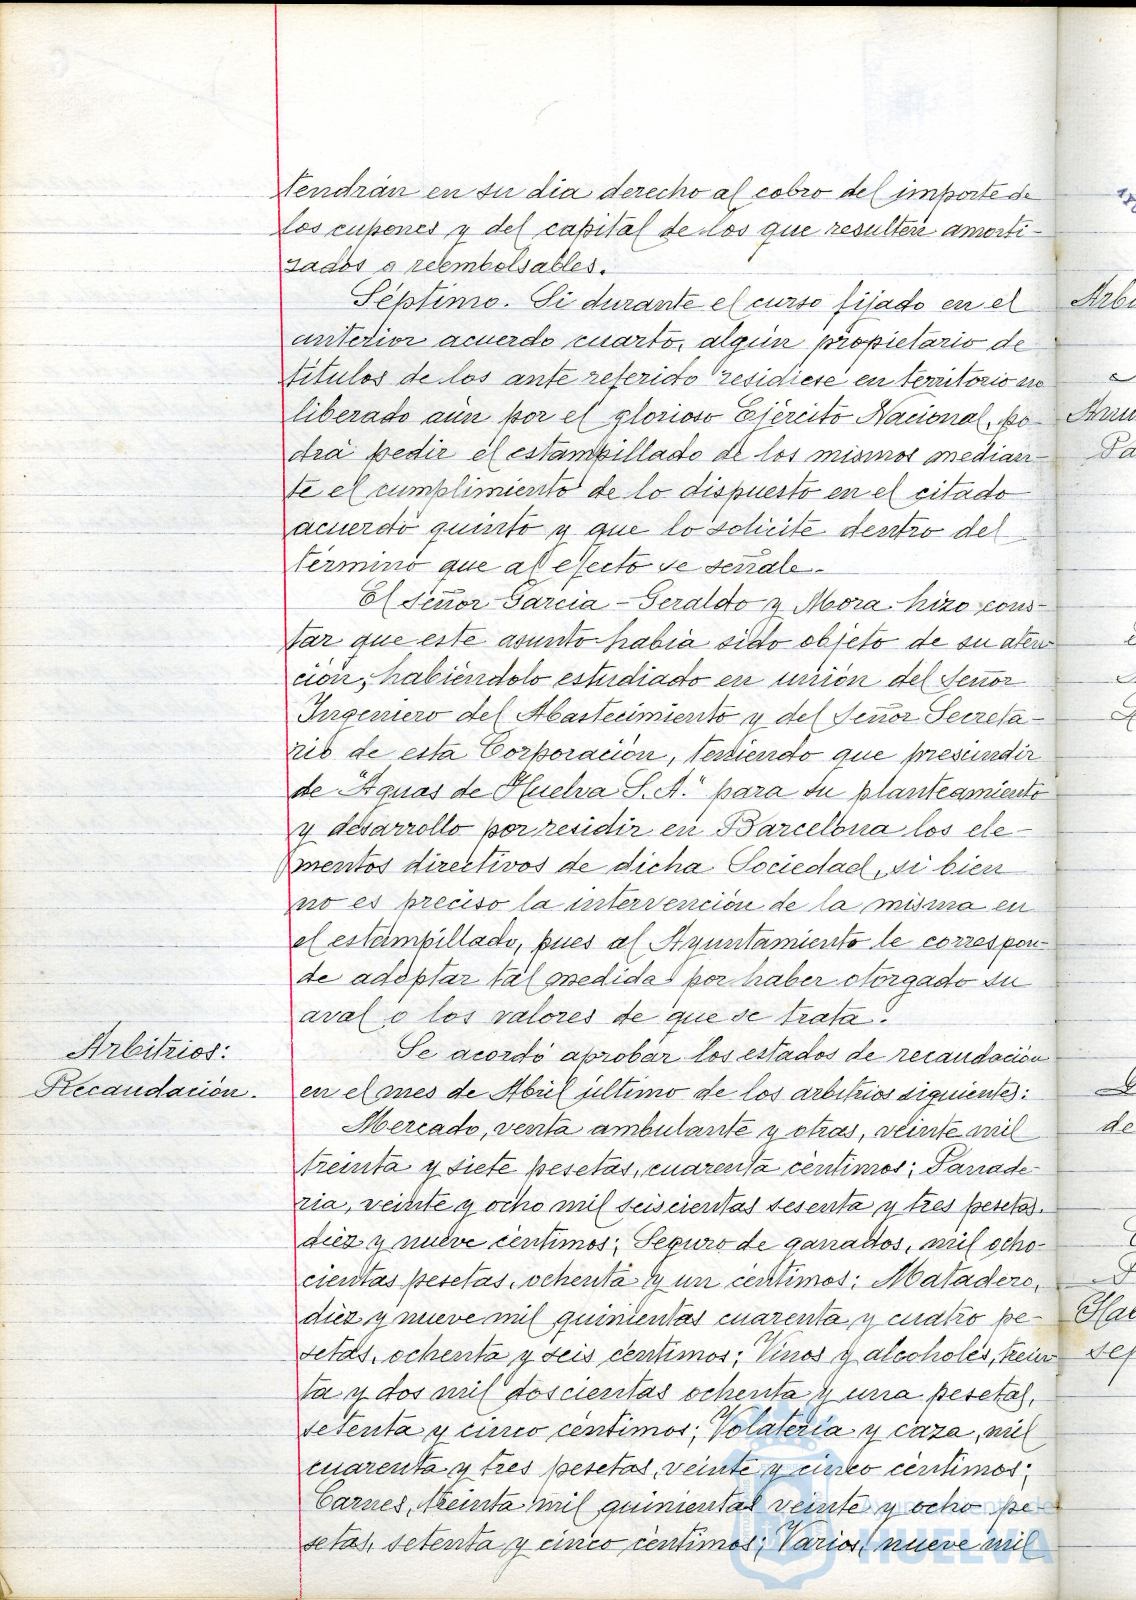 tendrán en su dia derecho al cobro del importe de
los cupones y del capital de los que resulten amorti-
zados o reembolsables.
Séptimo. Si durante el curso fijado en el
anterior acuerdo cuarto, algún propietario de
titulos de los ante referido residiese en territorio no
liberado aún por el glorioso Ejército Nacional, po-
drá pedir el estampillado de los mismos median-
te el cumplimiento de lo dispuesto en el citado
acuerdo quinto y que lo solicite dentro del
término que al efecto se señale.
El Señor Garcia-Geraldo y Mora hizo cons-
tar que este asunto habia sido objeto de su aten
ción, habiéndolo estudiado en unión del Señor
Ingeniero del Abastecimiento y del Señor Secreta-
rio de esta Corporación, teniendo que presindir
de "Aguas de Huelva S.A." para su planteamiento
y desarrollo por residir en Barcelona los ele-
mentos directivos de dicha Sociedad, si bien
no es preciso la intervención de la misma en
el estampillado, pues al Ayuntamiento le correspon-
de adoptar tal medida por haber otorgado su
aval a los valores de que se trata.
Arbitrios:
Recaudación.
Se acordó aprobar los estados de recaudación
en el mes de Abril último de los arbitrios siguientes:
Mercado, venta ambulante y otras, veinte mil
treinta y siete pesetas, cuarenta céntimos; Panade-
ria, veinte y ocho mil seiscientas sesenta y tres pesetas,
diez y nueve céntimos; Seguro de ganados, mil ocho-
cientas pesetas, ochenta y un céntimos; Matadero,
diez y nueve mil quinientas cuarenta y cuatro pe-
setas, ochenta y seis céntimos; Vinos y alcoholes, trein
ta y dos mil doscientas ochenta y una pesetas,
setenta y cinco céntimos; Volateria y caza, mil
cuarenta y tres pesetas, veinte y cinco céntimos;
Carnes, treinta mil quinientas veinte y ocho pe-
setas, setenta y cinco céntimos; Varios, nueve mil
HUELVA